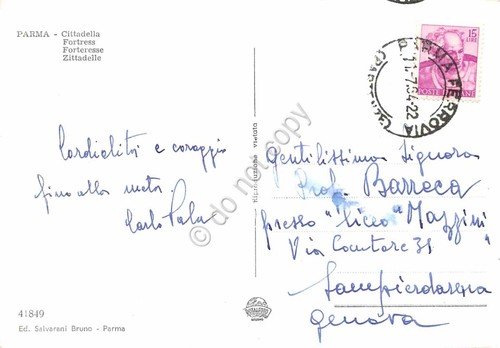 PARMA - Cittadella
Fortress
Forteresse
Zittadelle
15
LIRE
POSTE ITALIANE
PARMA FERROVIA
11-7.64-22
Cordialità e coraggio
fino alla meta.
Carlo
Gentilissima Signora
Prof. Barroca
presso "liceo Mazzini"
Via Cantore 31
Sampierdarena
Genova
Riproduzione vietata
© do not copy
41849
Ed. Salvarani Bruno - Parma